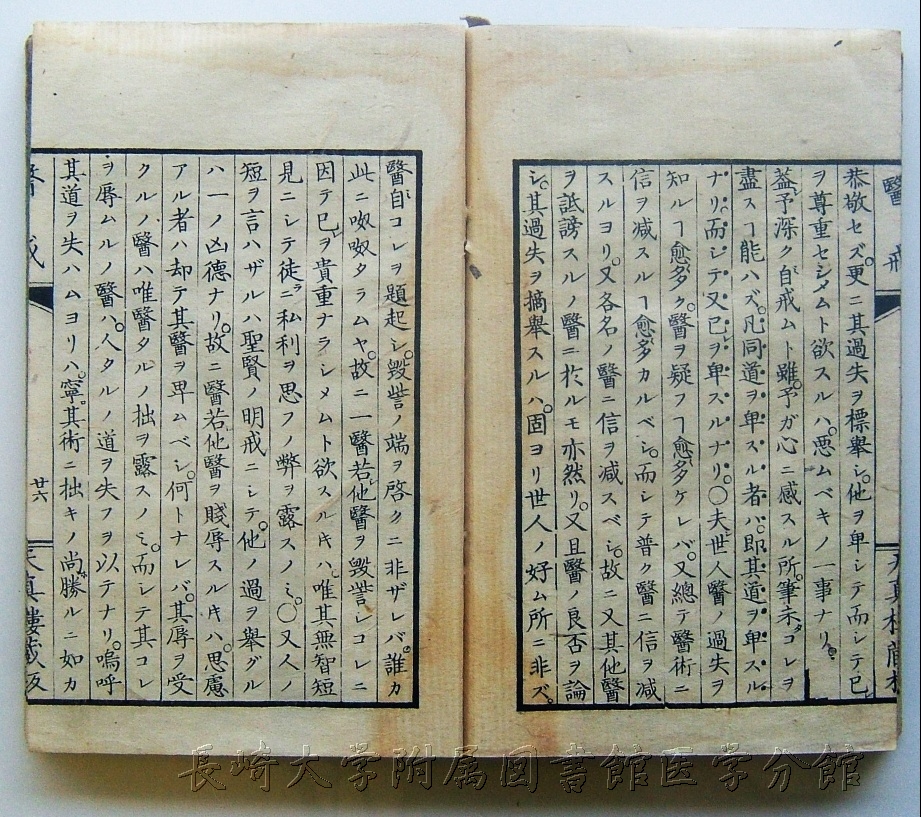 醫戒
恭敬セズ。更ニ其過失ヲ標舉シ。他ヲ卑シテ而シテ已
ヲ尊重セシメムト欲スルハ。悪ムベキノ一事ナリ。
蓋予深ク自戒ムト雖。予ガ心ニ感スル所。筆未コレヲ
盡スヿ能ハズ。凡同道ヲ卑スル者ハ。即其道ヲ卑スル
ナリ。而シテ又已ヲ卑スルナリ。○夫世人醫ノ過失ヲ
知ルヿ愈多ク。醫ヲ疑フヿ愈多ケレバ。又總テ醫術ニ
信ヲ减スルヿ愈多カルベシ。而シテ普ク醫ニ信ヲ减
スルヨリ。又各名ノ醫ニ信ヲ减スベシ。故ニ又其他醫
ヲ詆謗スルノ醫ニ於ルモ亦然リ。又且醫ノ良否ヲ論
シ。其過失ヲ摘舉スルハ。固ヨリ世人ノ好ム所ニ非ズ。
醫自コレヲ題起シ。毀訾ノ端ヲ啓クニ非ザレバ。誰カ
此ニ呶呶タラムヤ。故ニ一醫若他醫ヲ毀訾レコレニ
因テ已ヲ貴重ナラシメムト欲スルキハ。唯其無智短
見ニシテ徒ニ私利ヲ思フノ弊ヲ露スノミ。○又人ノ
短ヲ言ハザルハ聖賢ノ明戒ニシテ。他ノ過ヲ舉グル
ハ一ノ凶德ナリ。故ニ醫若他醫ヲ賤辱スルキハ。思慮
アル者ハ却テ其醫ヲ卑ムベシ。何トナレバ。其辱ヲ受
クルノ醫ハ唯醫タルノ拙ヲ露スノミ。而シテ其コレ
ヲ辱ムルノ醫ハ。人タルノ道ヲ失フヲ以テナリ。嗚呼
其道ヲ失ハムヨリハ。寧其術ニ拙キノ尚勝ルニ如カ
廿六
天真樓藏版
長崎大学附属図書館医学分館